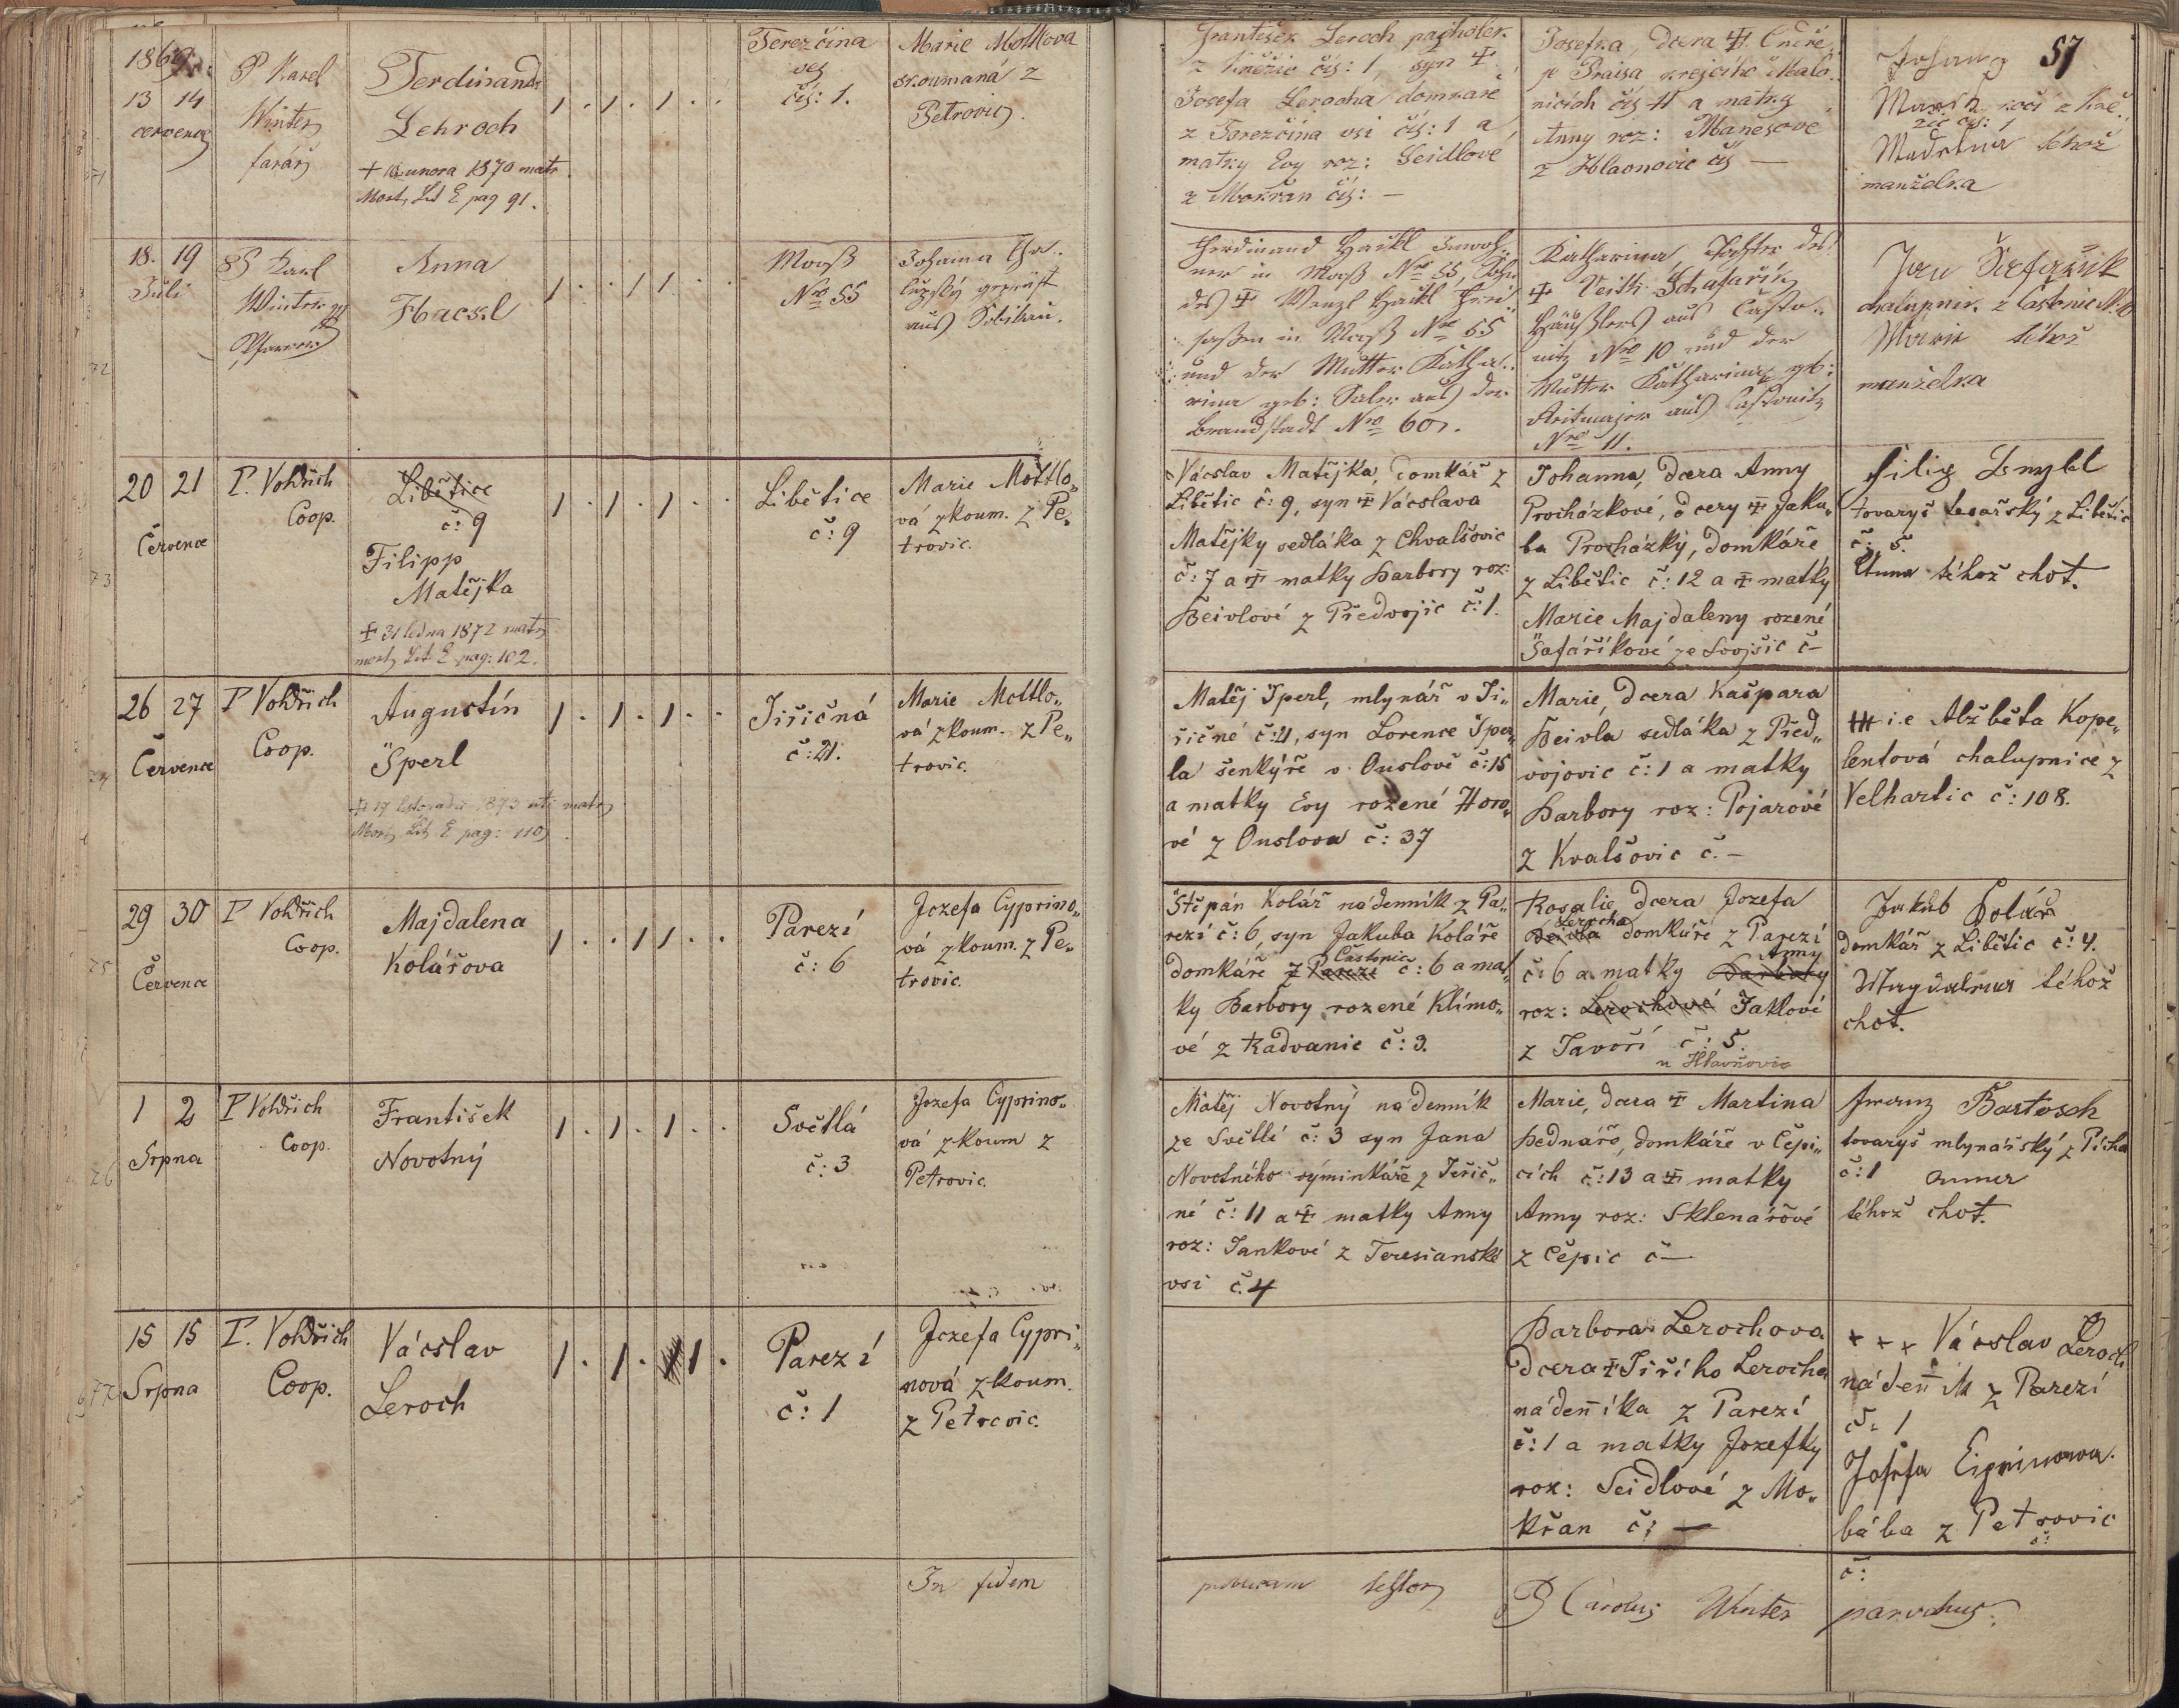 57
1869
13 14
července
P Karel
Winter
farář
Ferdinand
Lehroch
+ unora 1870 matr
Mort. Lit E pag 91.
1 . 1 . 1 . .
Terezčina
ves
čís: 1.
Marie Mottlova
skoumaná z
Petrovic.
František Leroch pacholek
z Kněžic čís: 1, syn +
Josefa Lerocha domkaře
z Terezčina vsi čís: 1 a
matky Evy roz: Seidlové
z Mokřan čís: —
Josefka, dcera +
Praisa krejčího
nicích čís 11 a matky
Anny roz: Manesové
z Hlaonovic čís —
Johann
z Kně-
žic čís: 1
téhož
manželka
18. 19
Juli
P Karl
Winter
Pfarrer
Anna
Hackl
1 . . 1 1 . .
Moos
Nro 55
Johanna
geprüft
aus
Ferdinand Hackl Inwoh-
ner in Moos Nro 55, Sohn
des + Wenzl Hackl
in Moos Nro 55
und der Mutter Katha-
rina geb: aus der
Brandstadt Nro 60.
Katharina, Tochter des
+ Veith Schafařik
Häuslers aus Často-
nitz Nro 10 und der
Mutter Katharina geb:
aus Častonitz
Nro 11.
Jan Šafařik
chalupnik z Častonic N. 10
Marie téhož
manželka
20 21
Července
P. Voldřich
Coop.
Libětice
č: 9
Filipp
Matějka
+ 31 ledna 1872 matr
mort. Lit E pag: 102.
1 . 1 . 1 . .
Libětice
č: 9
Marie Mottlo„
vá zkoum. z Pe„
trovic.
Vácslav Matějka, domkář z
Libětic č: 9, syn + Vácslava
Matějky sedláka z Chvalšovic
č: 7 a + matky Barbory roz:
Beivlové z Předvojic č: 1.
Johanna, dcera Anny
Procházkové, dcery + Jaku„
ba Procházky, domkáře
z Libětic č: 12 a + matky
Marie Majdaleny rozené
Šafaříkové ze Svojšic č —
Filip
tovaryš tesařský z Libětic
č: 5.
Anna téhož choť.
26 27
Července
P Voldřich
Coop.
Augustín
Šperl
+ 17 listopadu 1873 matr
Mort. Lit E pag: 110
1 . 1 . 1 . .
Jiřičná
č: 21.
Marie Mottlo„
vá zkoum. z Pe„
trovic.
Matěj Šperl, mlynář v Ji„
řičné č: 21, syn Lorence Šper„
la šenkýře v Ouslově č: 15
a matky Evy rozené Horo„
vé z Ouslova č: 37
Marie, dcera Kašpara
Beivla sedláka z Před„
vojovic č: 1 a matky
Barbory roz: Pojarové
z Kvalšovic č. —
+++ i.e Alžběta Kope„
lentová chalupnice z
Velhartic č: 108.
29 30
Července
P Voldřich
Coop.
Majdalena
Kolářova
1 . . 1 1 . .
Parezí
č: 6
Jozefa Cyprino„
vá zkoum. z Pe„
trovic.
Štěpán Kolář nádenník z Pa„
rezí č: 6, syn Jakuba Koláře
domkáře z Parezí Častonic č: 6 a mat„
ky Barbory rozené Klímo„
vé z Radvanic č: 3.
Rosalie, dcera Jozefa
Beivla Lerocha domkáře z Parezí
č: 6 a matky Barbory Anny
roz: Lerochové Jaklové
z Javoří č: 5.
u Hlavňovic
Jakub Kolář
domkář z Libětic č: 4.
Magdalena téhož
choť.
1 2
Srpna
P Voldřich
Coop.
František
Novotný
1 . 1 . 1 . .
Světlá
č: 3
Jozefa Cyprino„
vá zkoum z
Petrovic.
Matěj Novotný nádenník
ze Světlé č: 3 syn Jana
Novotného výminkáře z Jeřič„
né č: 11 a + matky Anny
roz: Jankové z Teresianské
vsi č. 4
Marie, dcera + Martina
Bednáře, domkáře v Čepi„
cích č: 13 a + matky
Anny roz: Sklenářové
z Čepic č —
Franz Bartosch
tovaryš mlynářský z Pícha
č: 1 Anna
téhož choť.
15 15
Srpna
P. Voldřich
Coop.
Vácslav
Leroch
1 . 1 . 1 .
Parezí
č: 1
Jozefa Cypri„
nová zkoum.
z Petrovic.
Barbora Lerochova
dcera + Jiřího Lerocha
nádeníka z Parezí
č: 1 a matky Jozefky
roz: Seidlové z Mo„
křan č: —
+ + + Vácslav Leroch
nádeník z Parezí
č: 1
Josefa Ciprinowa
bába z Petrovic
č:
In fidem
testor
P Carolus Winter parochus.